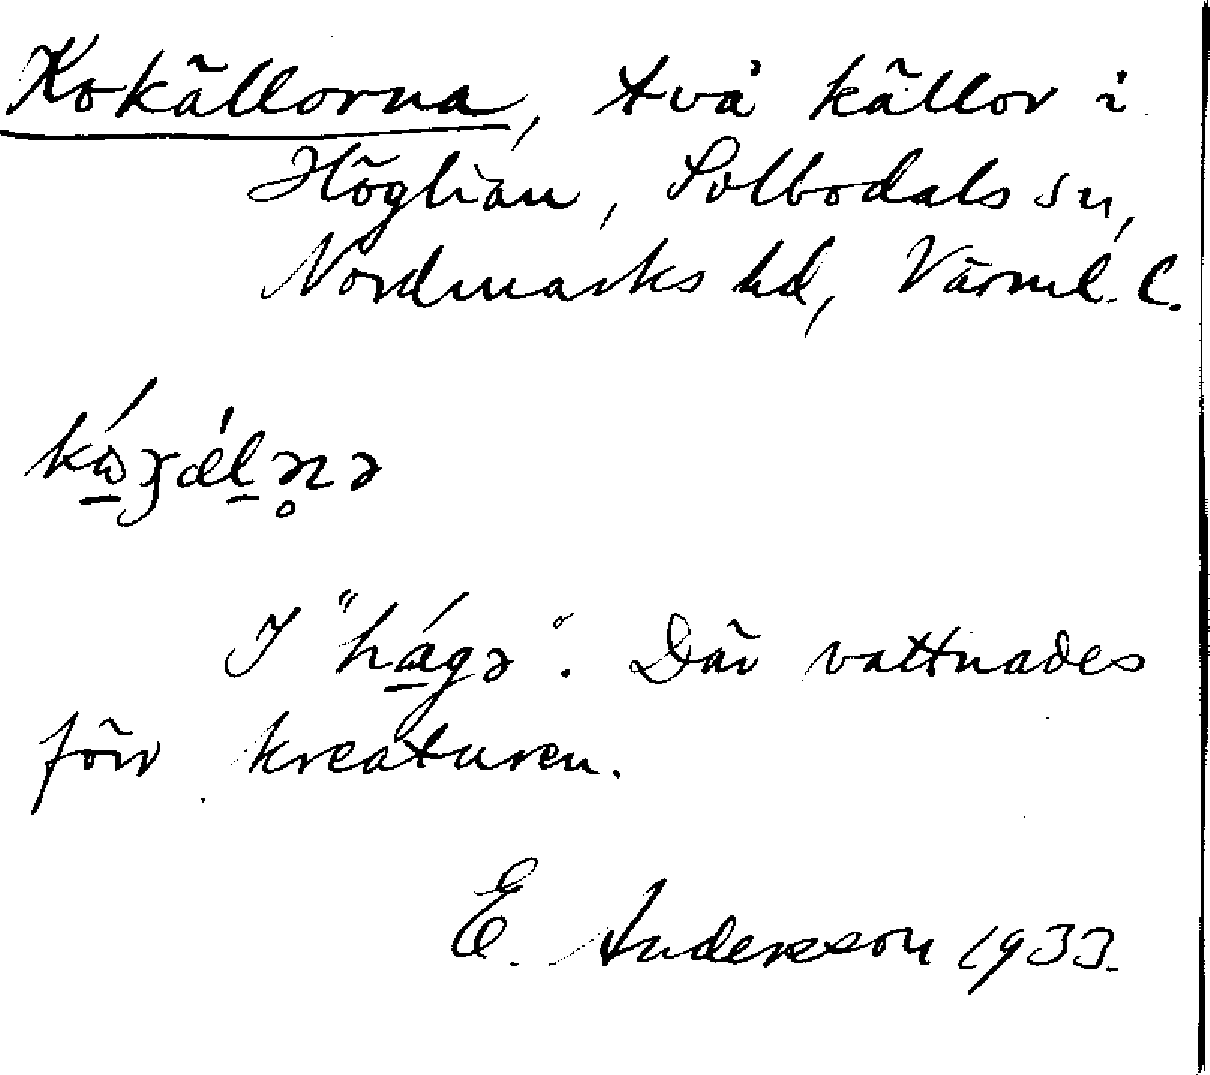 Kokällorna, två källor i
Höglian, Solbodals sn,
Nordmarks hd, Värml. l.
I "hágə". Där vattnades
förr kreaturen.
E. Andersson 1933.